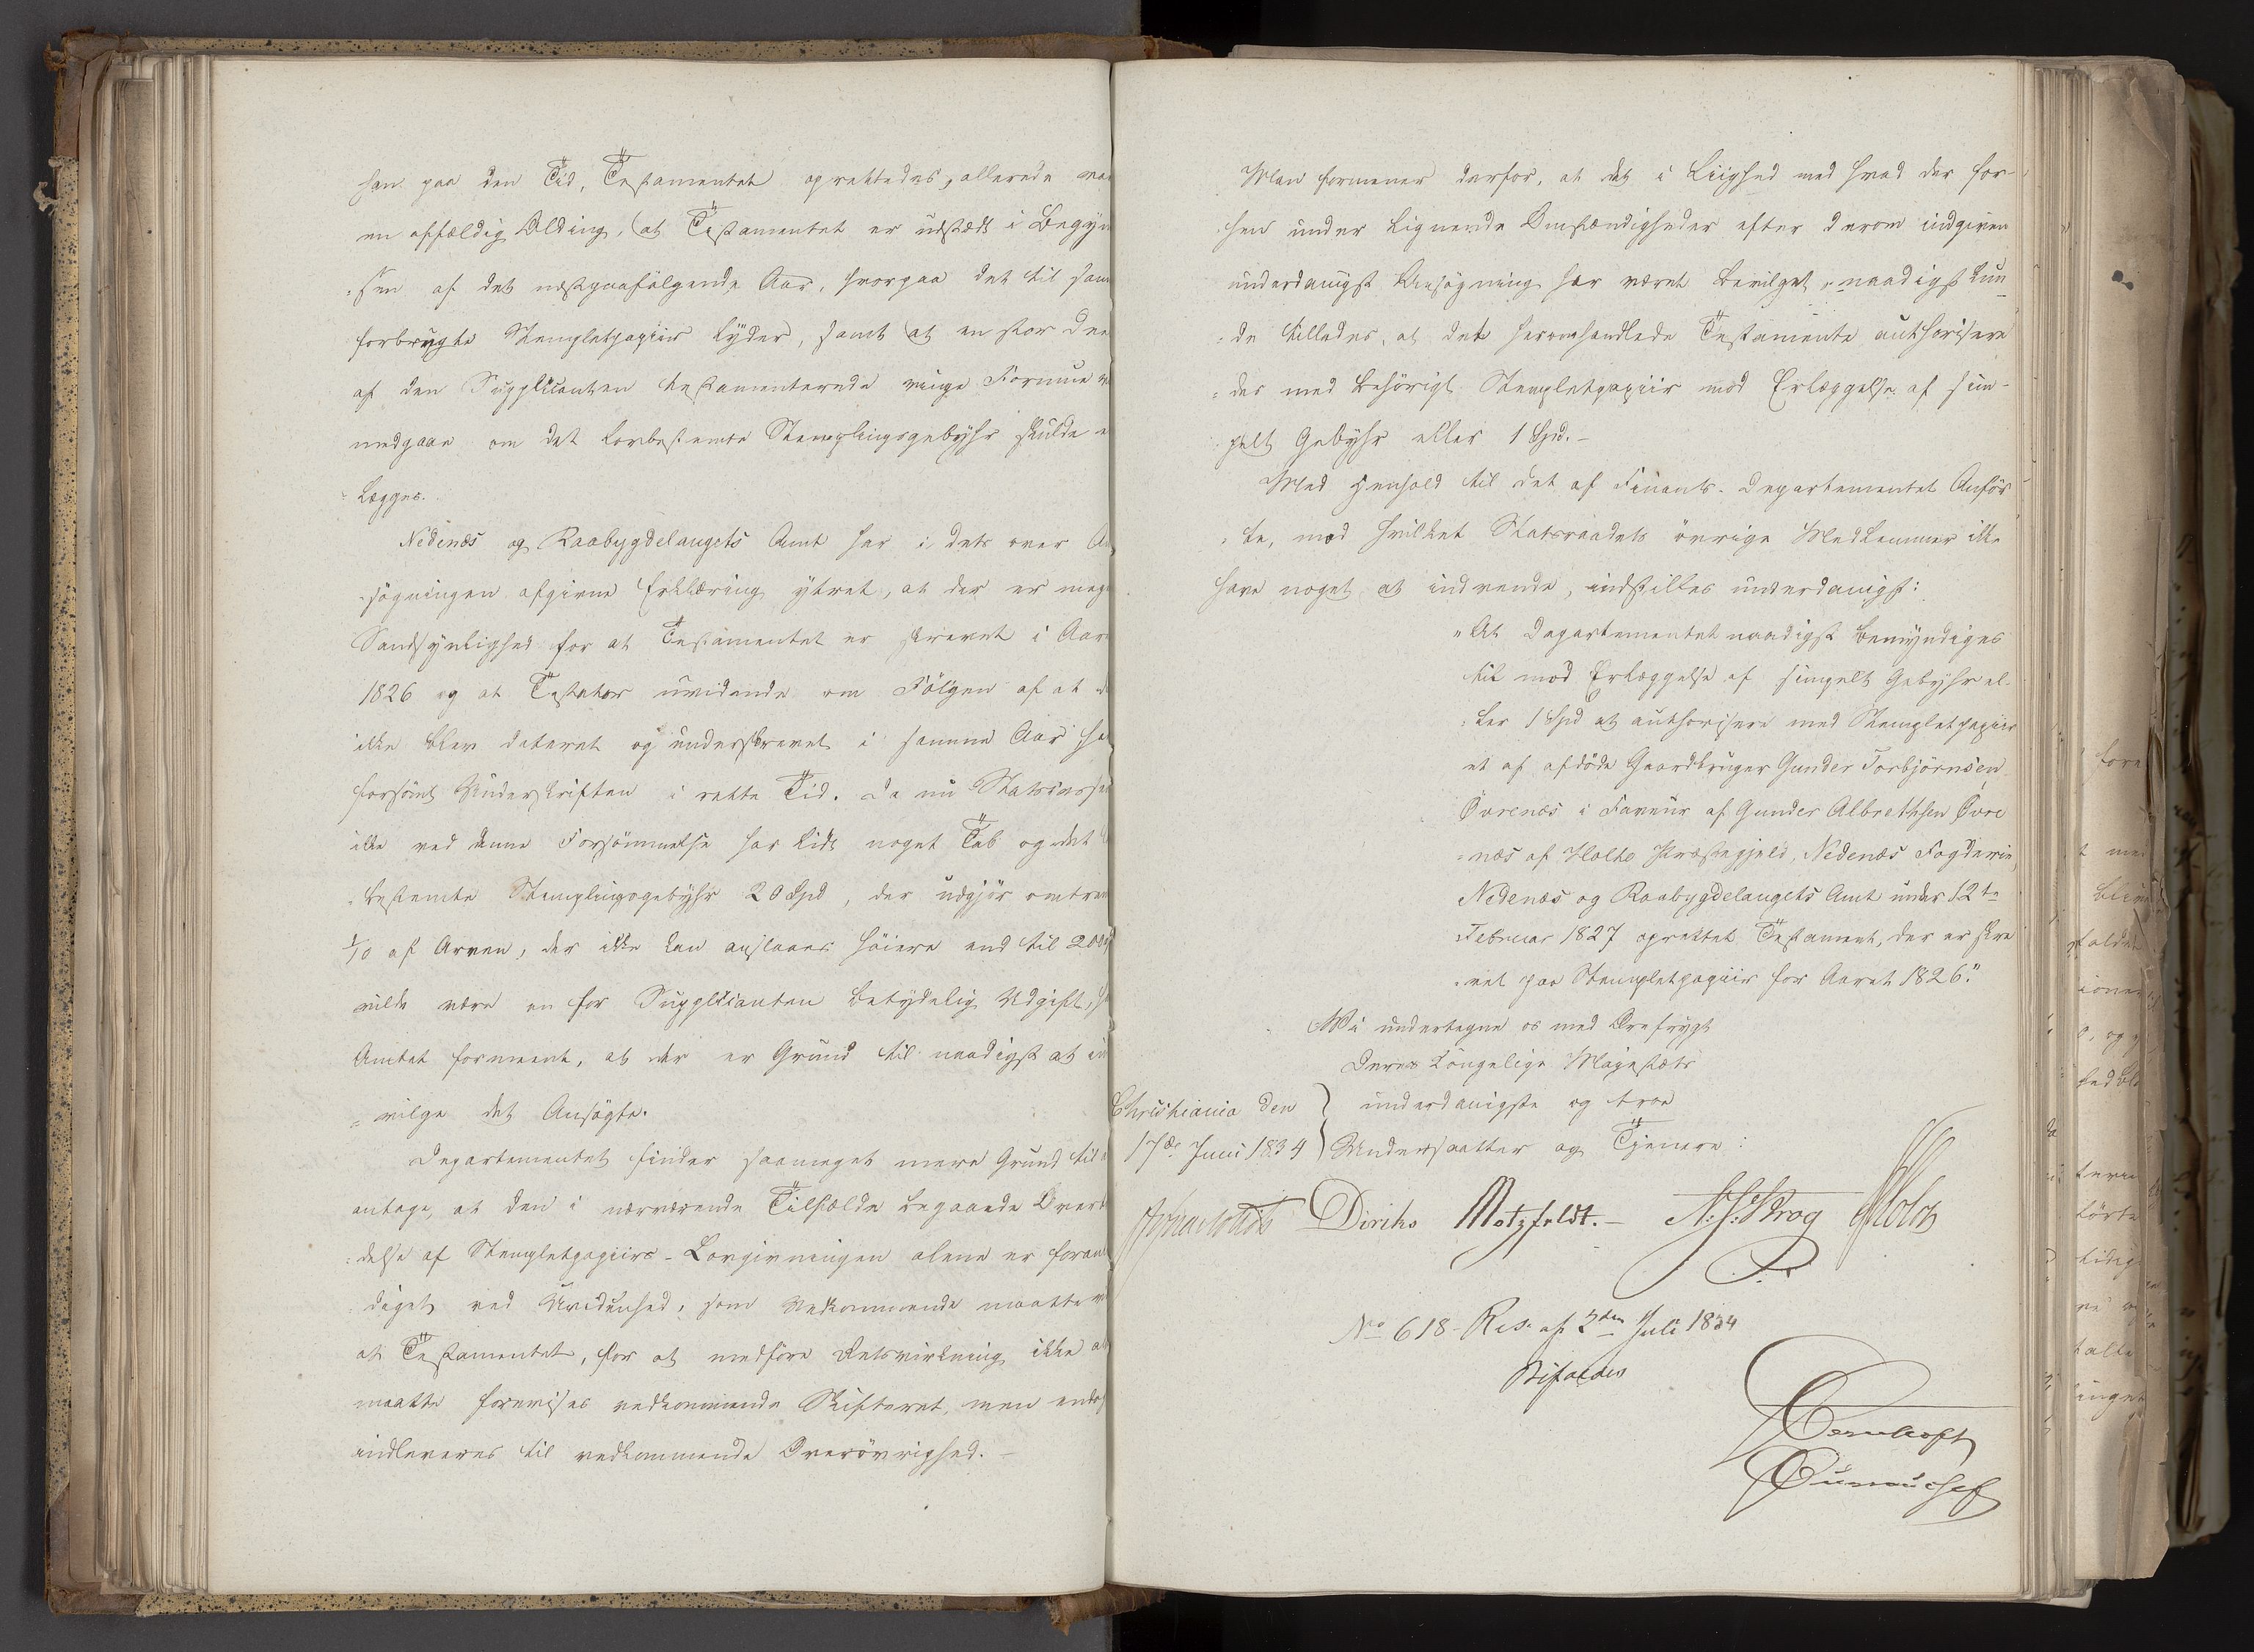 han paa den Tid, Testamentet oprettedes, allerede var
en affældig Olding, at Testamentet er udstædt i Begyn
-sen af det næstpaafølgende Aar, hvorpaa det til sam
forbrugte Stempletpapiir lyder, samt at en stor Deel
af den Supplicanten testamenterede ringe Formue
medgaae om det lovbestemte Stemplingsgebyhr skulde
lægges.
Nedenæs og Raabygdelaugets Amt har i dets over An
søgningen afgivne Erklæring yttret, at der er megen
Sandsynlighed for at Testamentet er skrevet i Aaret
1826 og at Testator uvidende om Følgen af at
ikke blev dateret og underskrevet i samme Aar har
forsømt Underskriften i rette Tid. Da nu Statscassen
ikke ved denne Forsømmelse har lidt noget Tab og det
bestemte Stemplingsgebyhr 20 Spd, der udgjør omtrent
1/10 af Arven, der ikke kan anslaaes høiere end til 200
vilde være en for Supplicanten betydelig Udgift,
Amtet formeent, at der er Grund til naadigst at
-vilge det Ansøgte.
Departementet finder saameget mere Grund til
antage, at den i nærværende Tilfælde begaaede Over
-delse af Stempletpapiirs-Lovgivningen alene er foran
-diget ved Uvidenhed, som Vedkommende maatte
at Testamentet, for at medføre Retsvirkning ikke
maatte forevises vedkommende Skifteret, men
indleveres til vedkommende Overøvrighed. -
Man formener derfor, at det i Liighed med hvad der for-
hen under lignende Omstændigheder efter derom indgiven
underdanigst Ansøgning har været bevilget, naadigst kun
-de tillades, at det heromhandlede Testamente authorisere
-des med behørigt Stempletpapiir mod Erlæggelse af sim-
pelt Gebyhr eller 1 Spd. -
Med Henhold til det af Finants-Departementet Anfør
-te, mod hvilket Statsraadets øvrige Medlemmer ikke
have noget at indvende, indstilles underdanigst:
"At Departementet naadigst bemyndiges
til mod Erlæggelse af simpelt Gebyhr el-
-ler 1 Spd at authorisere med Stempletpapiir
et af afdøde Gaardbruger Gunder Torbjørnsen
Øvrenæs i Faveur af Gunder Albrethsen Øvre
-næs af Holte Præstegjeld, Nedenæs Fogderie,
Nedenæs og Raabygdelaugets Amt under 12te
Februar 1827 oprettet Testament, der er skre
-vet paa Stempletpapiir for Aaret 1826."
Vi undertegne os med Ærefrygt
Deres Kongelige Majestæts
Christiania den underdanigste og troe
17de Juni 1834 Undersaatter og Tjenere:
Diriks Motzfeldt. - N. J. Krog Holst
No 618 - Res. af 2den Juli 1834
Bifaldes